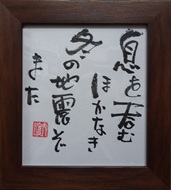 息を呑む
ほかなき
冬の地震ぞ
また